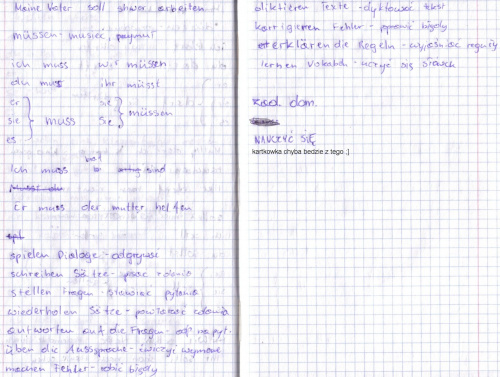 Meine Vater soll shwer arbeiten
müssen - musieć, powinni
ich muss wir müssen
du muss ihr müsst
er sie
sie muss sie müssen
es
Ich muss
Er muss der mutter helfen
spielen Dialoge - odgrywać
schreiben Sätze - pisać zdania
stellen Fragen - stawiać pytania
wiederholen Sätze - powtarzać zdania
antworten auf die Fragen - odp. na pyt.
üben die Aussprache - ćwiczyć wymowę
machen Fehler - robić błędy
diktieren Texte - dyktować tekst
korrigieren Fehler - poprawić błędy
erklären die Regeln - wyjaśniać reguły
lernen Vokabeln - uczyć się słówek
zad dom.
NAUCZYĆ SIĘ
kartkowka chyba bedzie z tego ;)